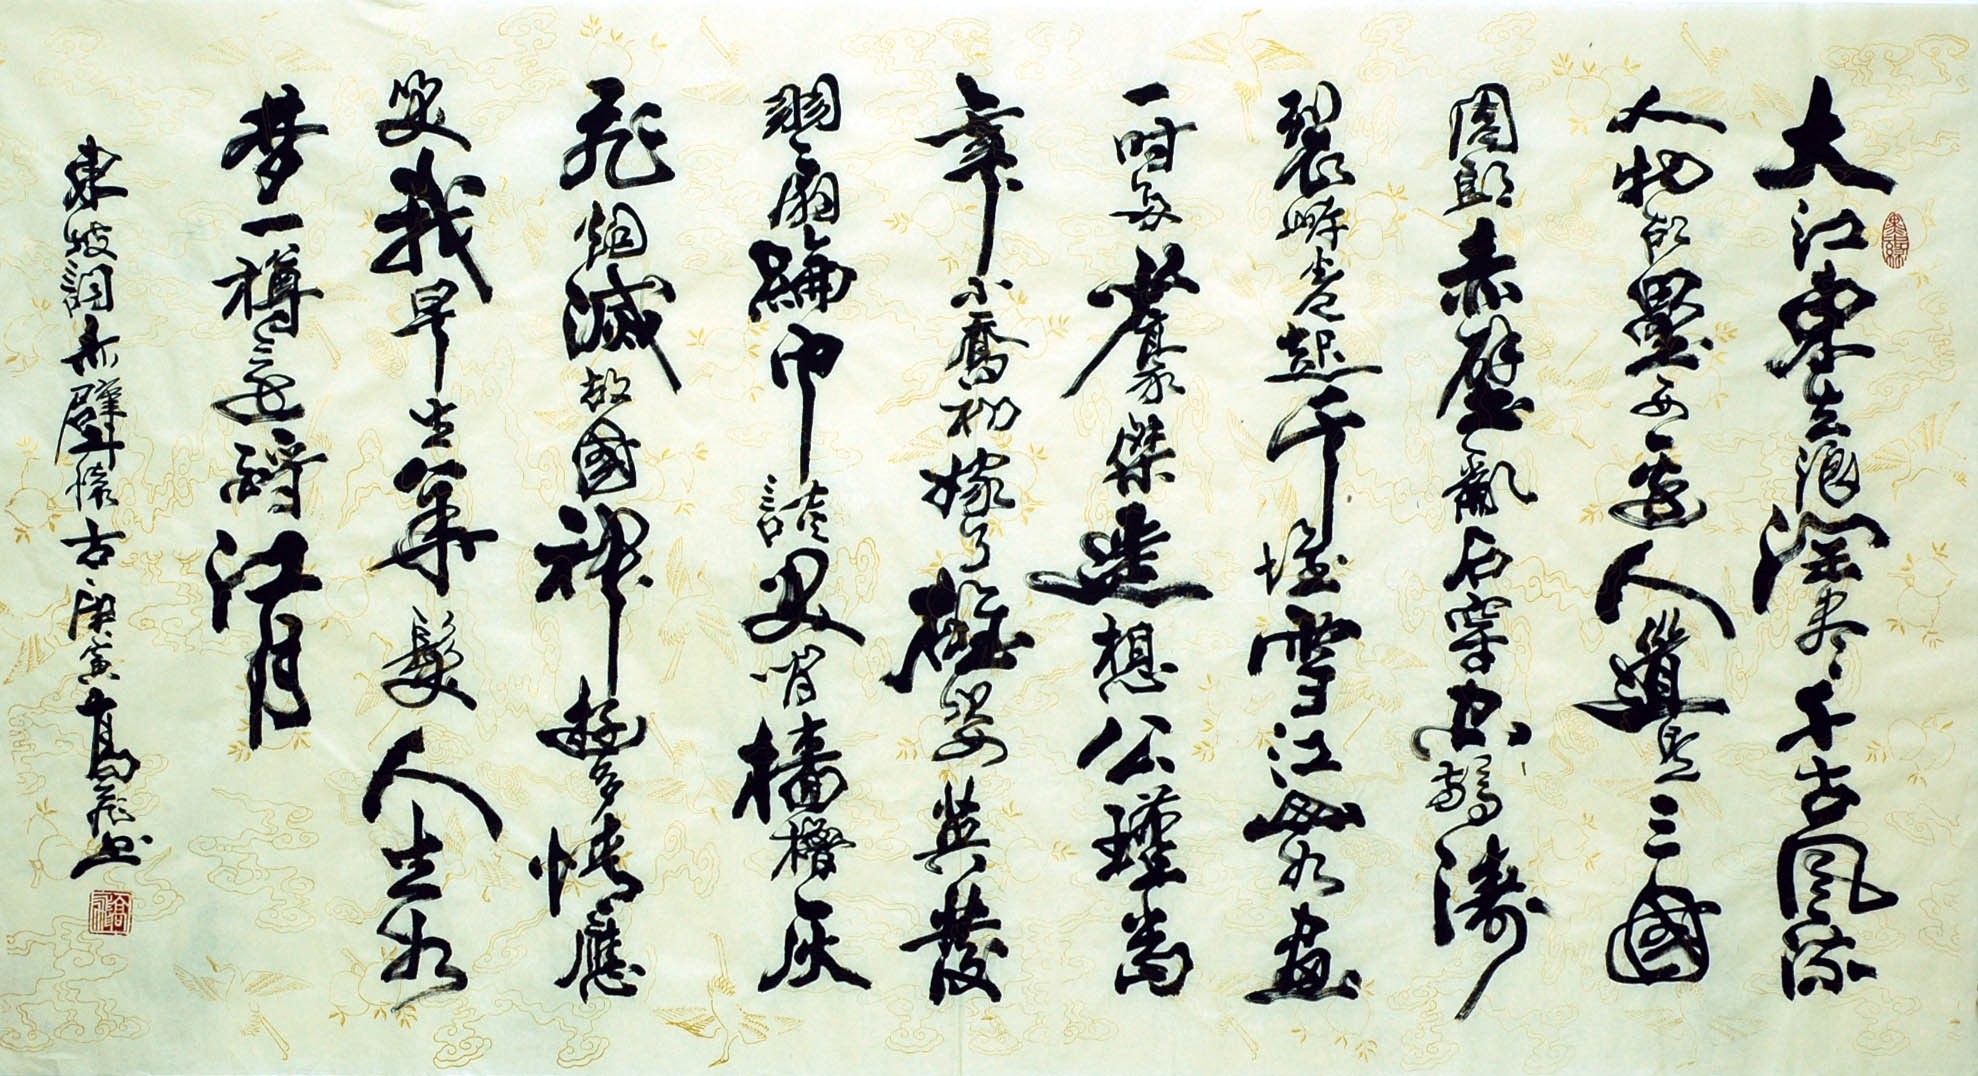 大江東去浪淘尽千古風流
人物故壘西邊人道是三國
周郎赤壁亂石穿空驚濤
裂岸卷起千堆雪江山如畫
一時多少豪傑遙想公瑾當
年小喬初嫁了雄姿英發
羽扇綸巾談笑間檣櫓灰
飛烟滅故國神遊多情應
笑我早生華髮人生如
夢一樽還酹江月
東坡詞赤壁懷古庚寅高飛书